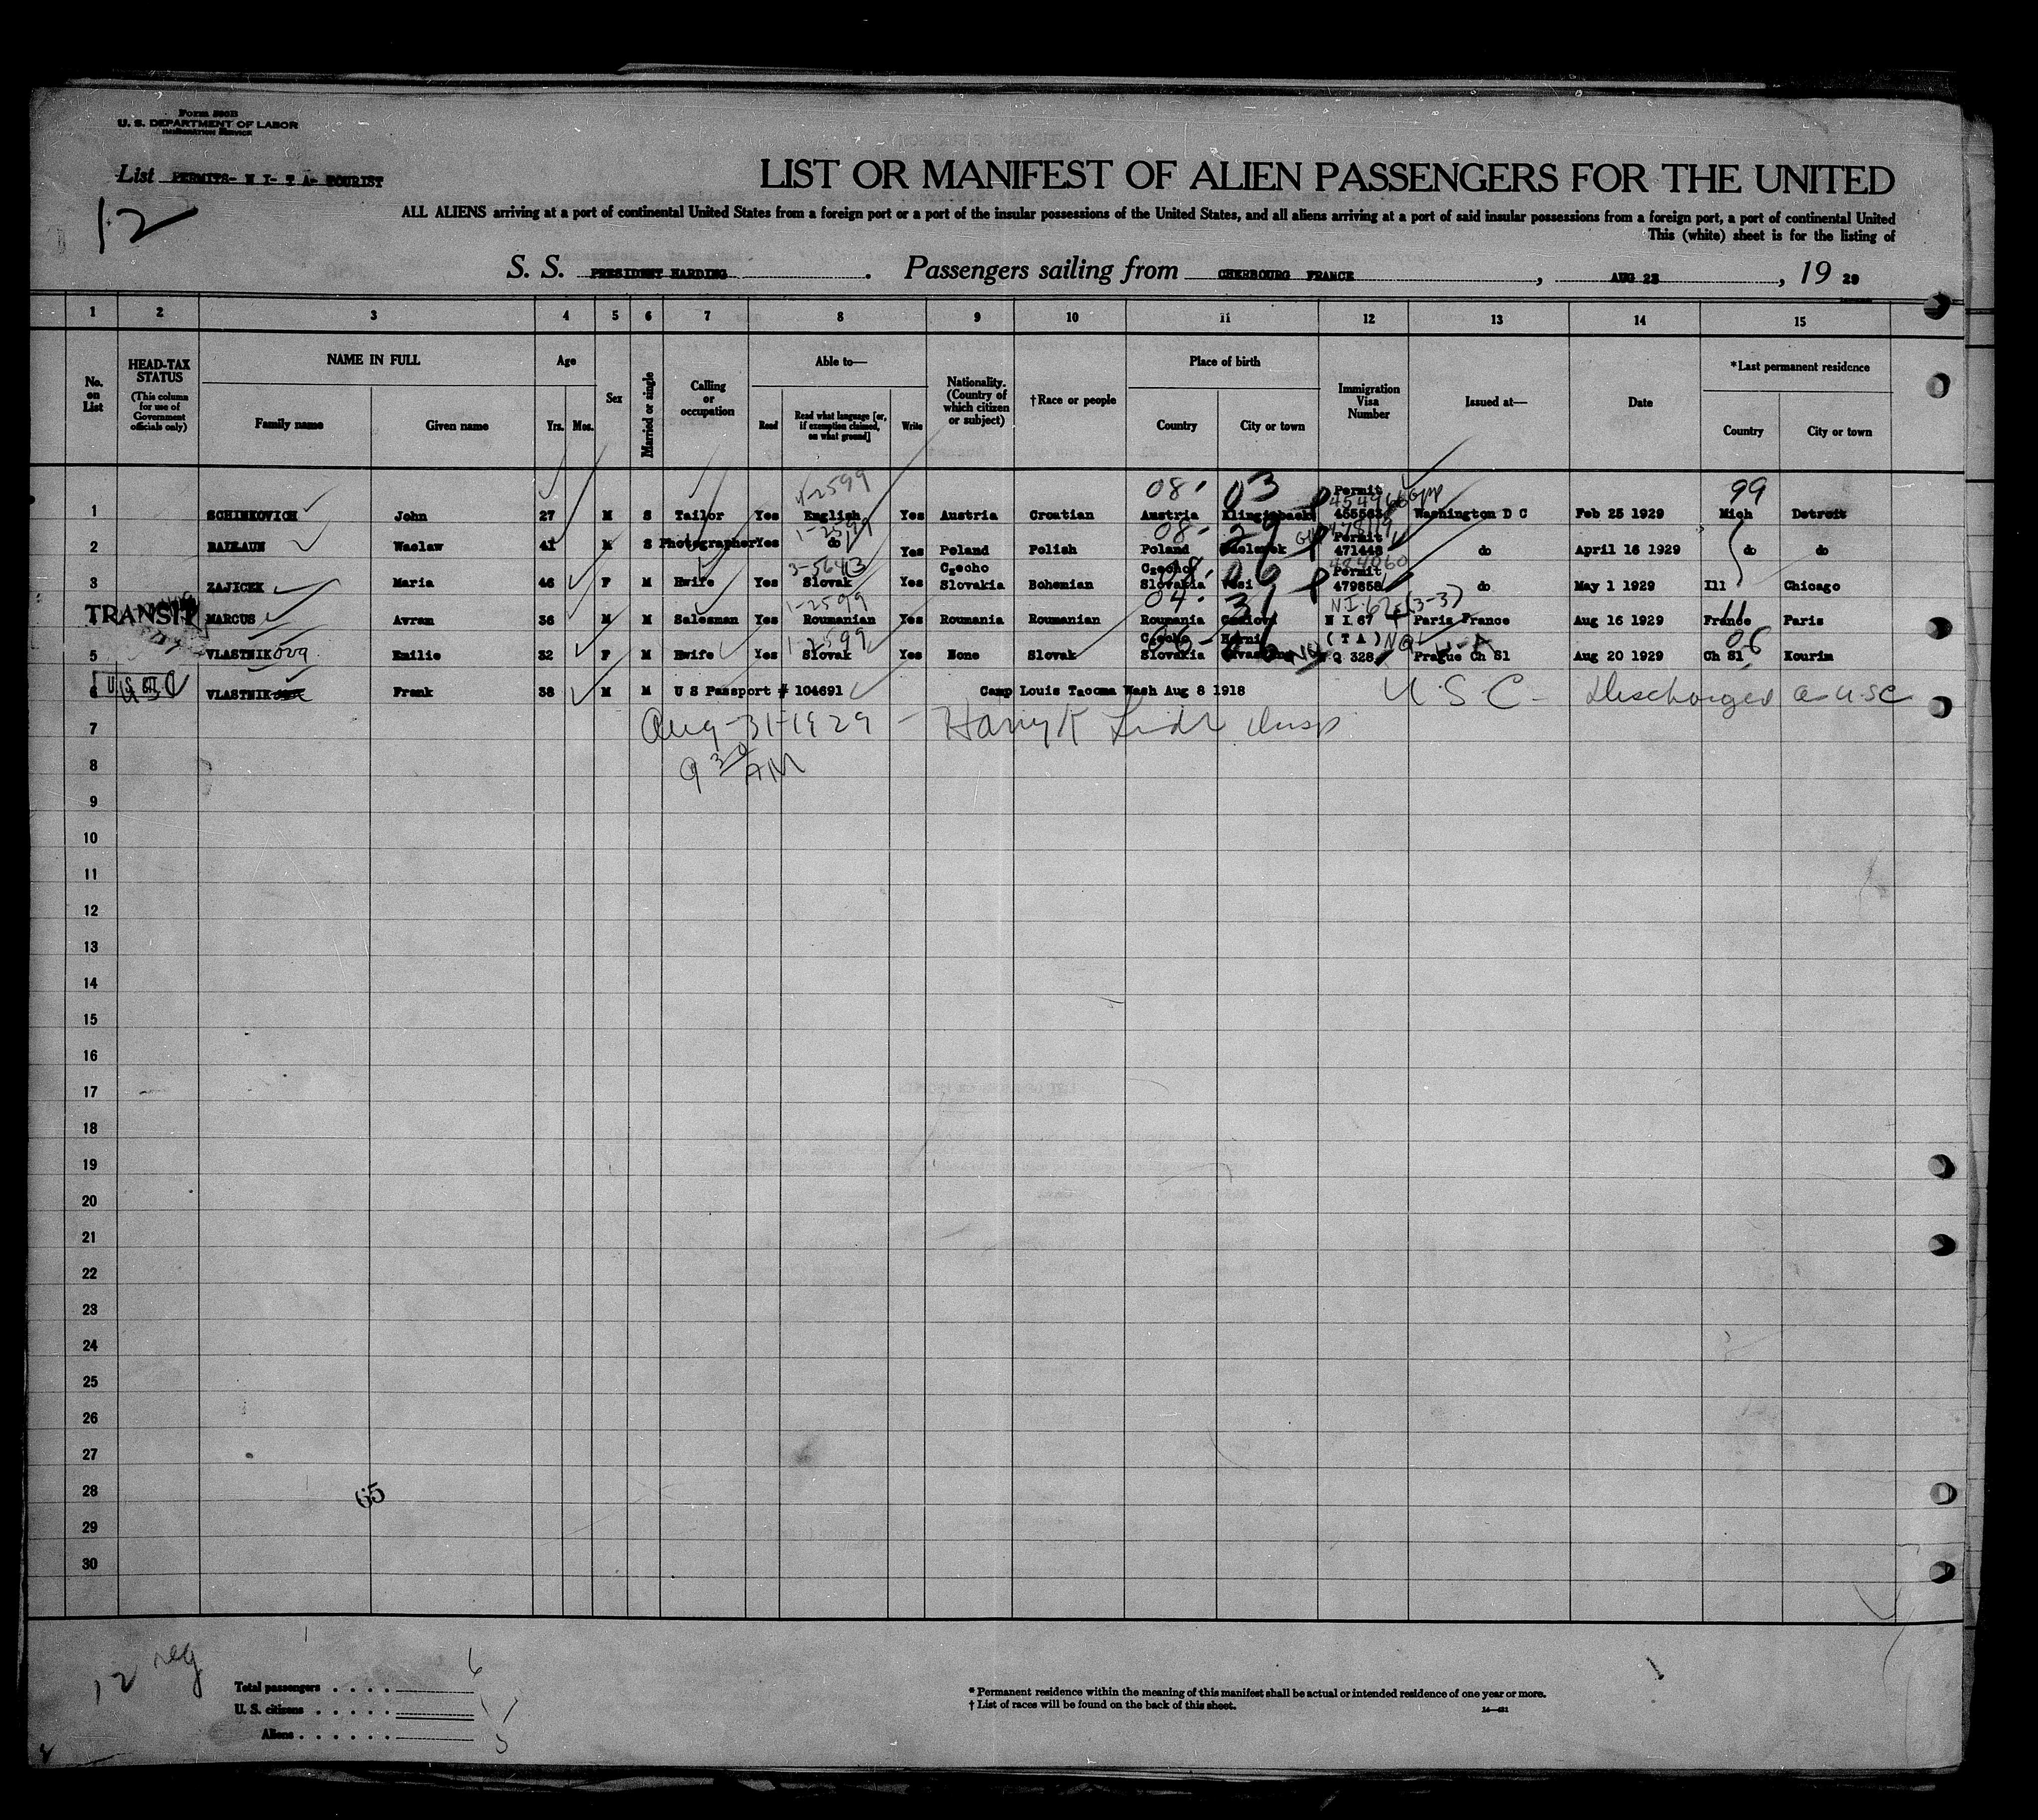 Form 500B
U. S. DEPARTMENT OF LABOR
IMMIGRATION SERVICE
List PERMITS- N I- T A- TOURIST
12
LIST OR MANIFEST OF ALIEN PASSENGERS FOR THE UNITED
ALL ALIENS arriving at a port of continental United States from a foreign port or a port of the insular possessions of the United States, and all aliens arriving at a port of said insular possessions from a foreign port, a port of continental United
This (white) sheet is for the listing of
S. S. PRESIDENT HARDING . Passengers sailing from CHERBOURG FRANCE , AUG 23 , 19 29
1 2 3 4 5 6 7 8 9 10 11 12 13 14 15
No. on List
HEAD-TAX STATUS (This column for use of Government officials only)
NAME IN FULL
Family name
Given name
Age
Yrs. Mos.
Sex
Married or single
Calling or occupation
Able to—
Read
Read what language [or, if exemption claimed, on what ground]
Write
Nationality. (Country of which citizen or subject)
†Race or people
Place of birth
Country
City or town
Immigration Visa Number
Issued at—
Date
*Last permanent residence
Country
City or town
4-2599 08. 03 Permit 99
1 SCHINKOVICH John 27 M S Tailor Yes English Yes Austria Croatian Austria 455563 Washington D C Feb 25 1929 Mich Detroit
1-2599 08- 29 Permit
2 Waclaw 41 M S Photographer Yes do Yes Poland Polish Poland 471448 do April 16 1929 do do
3-5643 Czecho Czecho 06 Permit 484060
3 ZAJICEK Maria 46 F M Hwife Yes Slovak Yes Slovakia Bohemian Slovakia 479858 do May 1 1929 Ill Chicago
1-2599 04. 31 N I 67 (3-3) 11
TRANSIT MARCUS Avram 36 M M Salesman Yes Roumanian Yes Roumania Roumanian Roumania N I 67 Paris France Aug 16 1929 France Paris
1-2599 Czecho (T A) NQ 06
5 VLASTNIK ova Emilie 32 F M Hwife Yes Slovak Yes None Slovak Slovakia N Q 328 Prague Ch Sl Aug 20 1929 Ch Sl Kourim
USC VLASTNIK Frank 38 M M U S Passport # 104691 Camp Louis Tacoma Wash Aug 8 1918 U.S.C- Discharged a USC
7 Aug-31-1929 - Harry K Insp
8 9 30 AM
9
10
11
12
13
14
15
16
17
18
19
20
21
22
23
24
25
26
27
28 65
29
30
12 reg
Total passengers . . . . 6
U. S. citizens . . . . . 1
Aliens . . . . . . 5
* Permanent residence within the meaning of this manifest shall be actual or intended residence of one year or more.
† List of races will be found on the back of this sheet.